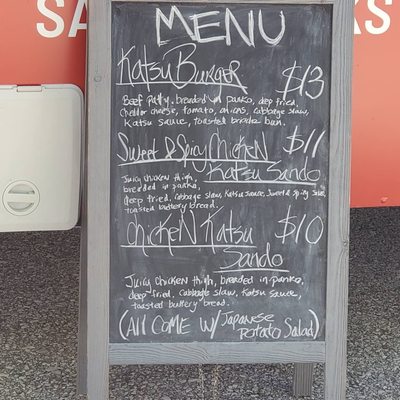 SA
KS
MENU
Katsu Burger $13
Beef Patty, breaded in panko, deep fried,
Cheddar cheese, tomato, onions, cabbage slaw,
Katsu sauce, toasted brioche bun.
Sweet & Spicy Chicken $11
Katsu Sando
Juicy chicken thigh,
breaded in panko,
deep fried, cabbage slaw, Katsu sauce, sweet & spicy sauce,
toasted buttery bread.
Chicken Katsu $10
Sando
Juicy chicken thigh, breaded in panko,
deep fried, cabbage slaw, Katsu sauce,
toasted buttery bread.
(All come w/ Japanese
potato salad)